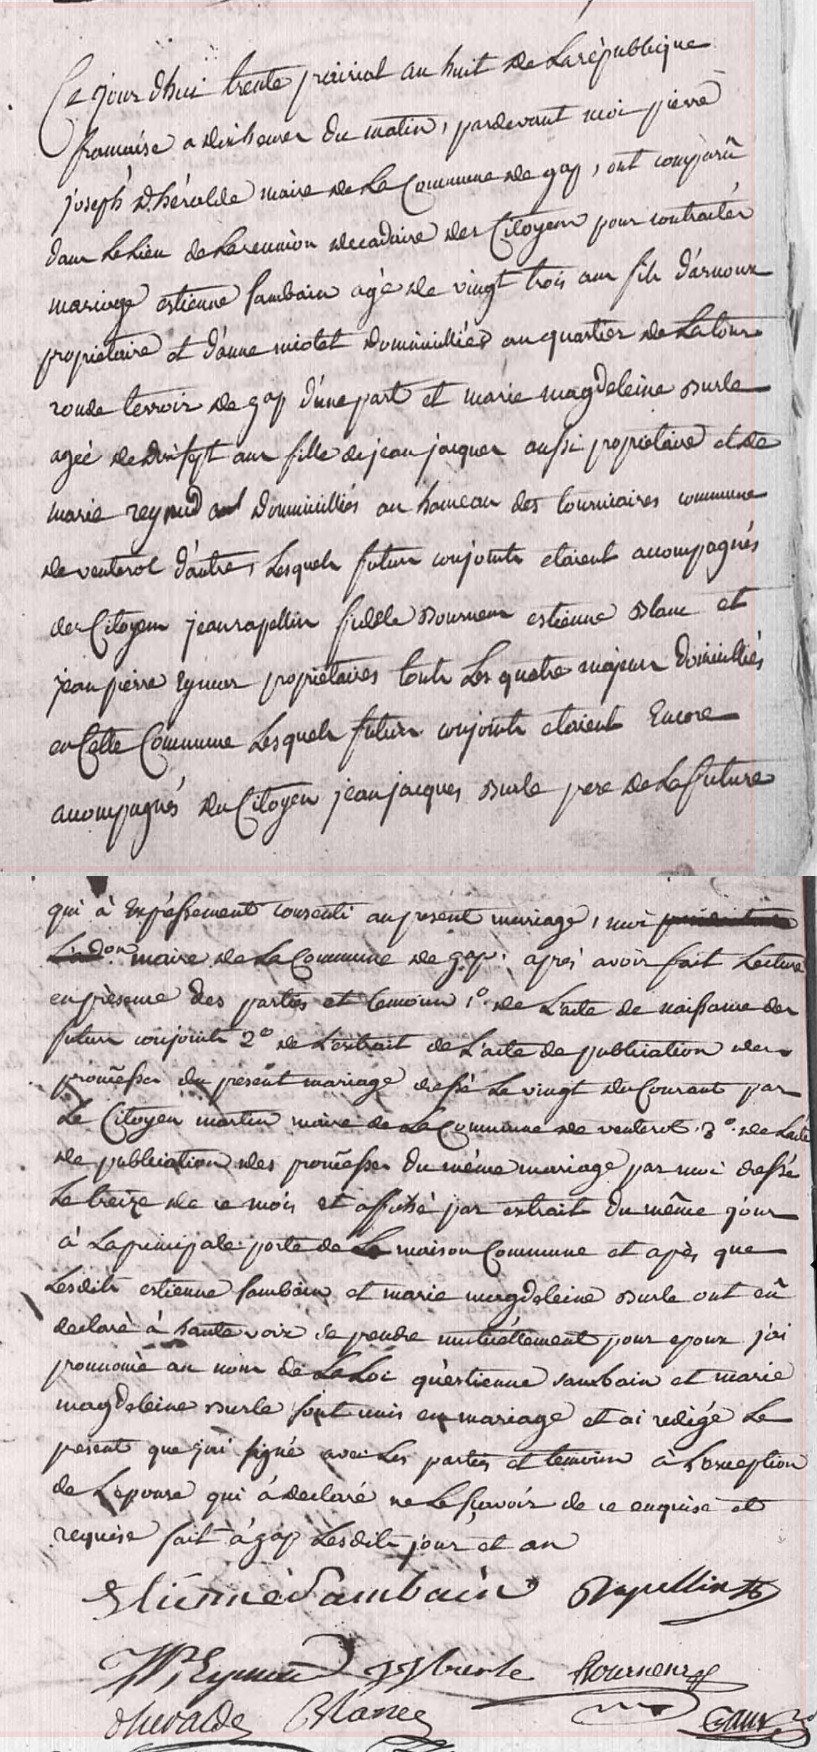 Ce jour dhui trente prairial an huit de La république
francaise a dix heures du matin, pardevant moi pierre
joseph d.héralde maire de La Commune de gap, ont comparû
dans Le Lieu de La reunion decadaire des Citoyens pour contracter
mariage estienne Sambain agé de vingt trois ans fils d'arnoux
proprietaire et d'anne miolet domicilliés au quartier de La tour
ronde terroir de gap d'une part et marie magdeleine Burle
ageé de dix sept ans fille de jean jacques aussi proprietaire et de
marie reynaud domicilliés au hameau des tourniaires commune
de venterol d'autre, Lesquels futurs conjoints etaient accompagnés
des Citoyens jean rapellin fidele Bourneur estienne Blanc et
jean pierre Eymar propriétaires touts Les quatre majeurs domicilliés
en Cette Commune Lesquels futurs conjoints etaient Encore
acompagnés du Citoyen jean jacques Burle pere de La future
qui à Expréssement consenti au present mariage, moi
maire de La Commune de gap. aprés avoir fait Lecture
en présence des parties et temoins 1º. de L'acte de naissance des
futurs conjoints 2º de L'extrait de L'acte de publication des
promesses du present mariage dressé Le vingt du Courant par
Le Citoyen martin maire de La Commune de venterol. 3º. de L'acte
de publication des promesses du même mariage par moi dressé
Le treize de ce mois et affiché par extrait du même jour
à La principale porte de La maison Commune et après que
Lesdits estienne Sambain et marie magdeleine Burle ont eû
declaré à haute voix se prendre mutuéllement pour epoux j'ai
prononcé au nom de La Loi qu'estienne Sambain et marie
magdeleine Burle sont unis en mariage et ai redigé Le
present que j'ai signé avec Les parties et temoins à L'exception
de L'epouse qui à declaré ne Le sçavoir de ce enquise et
requise fait à gap Lesdits jour et an
Etienne Sambain Rapellin
JP Eymar JJ burle Bourneur
dheralde Blanc